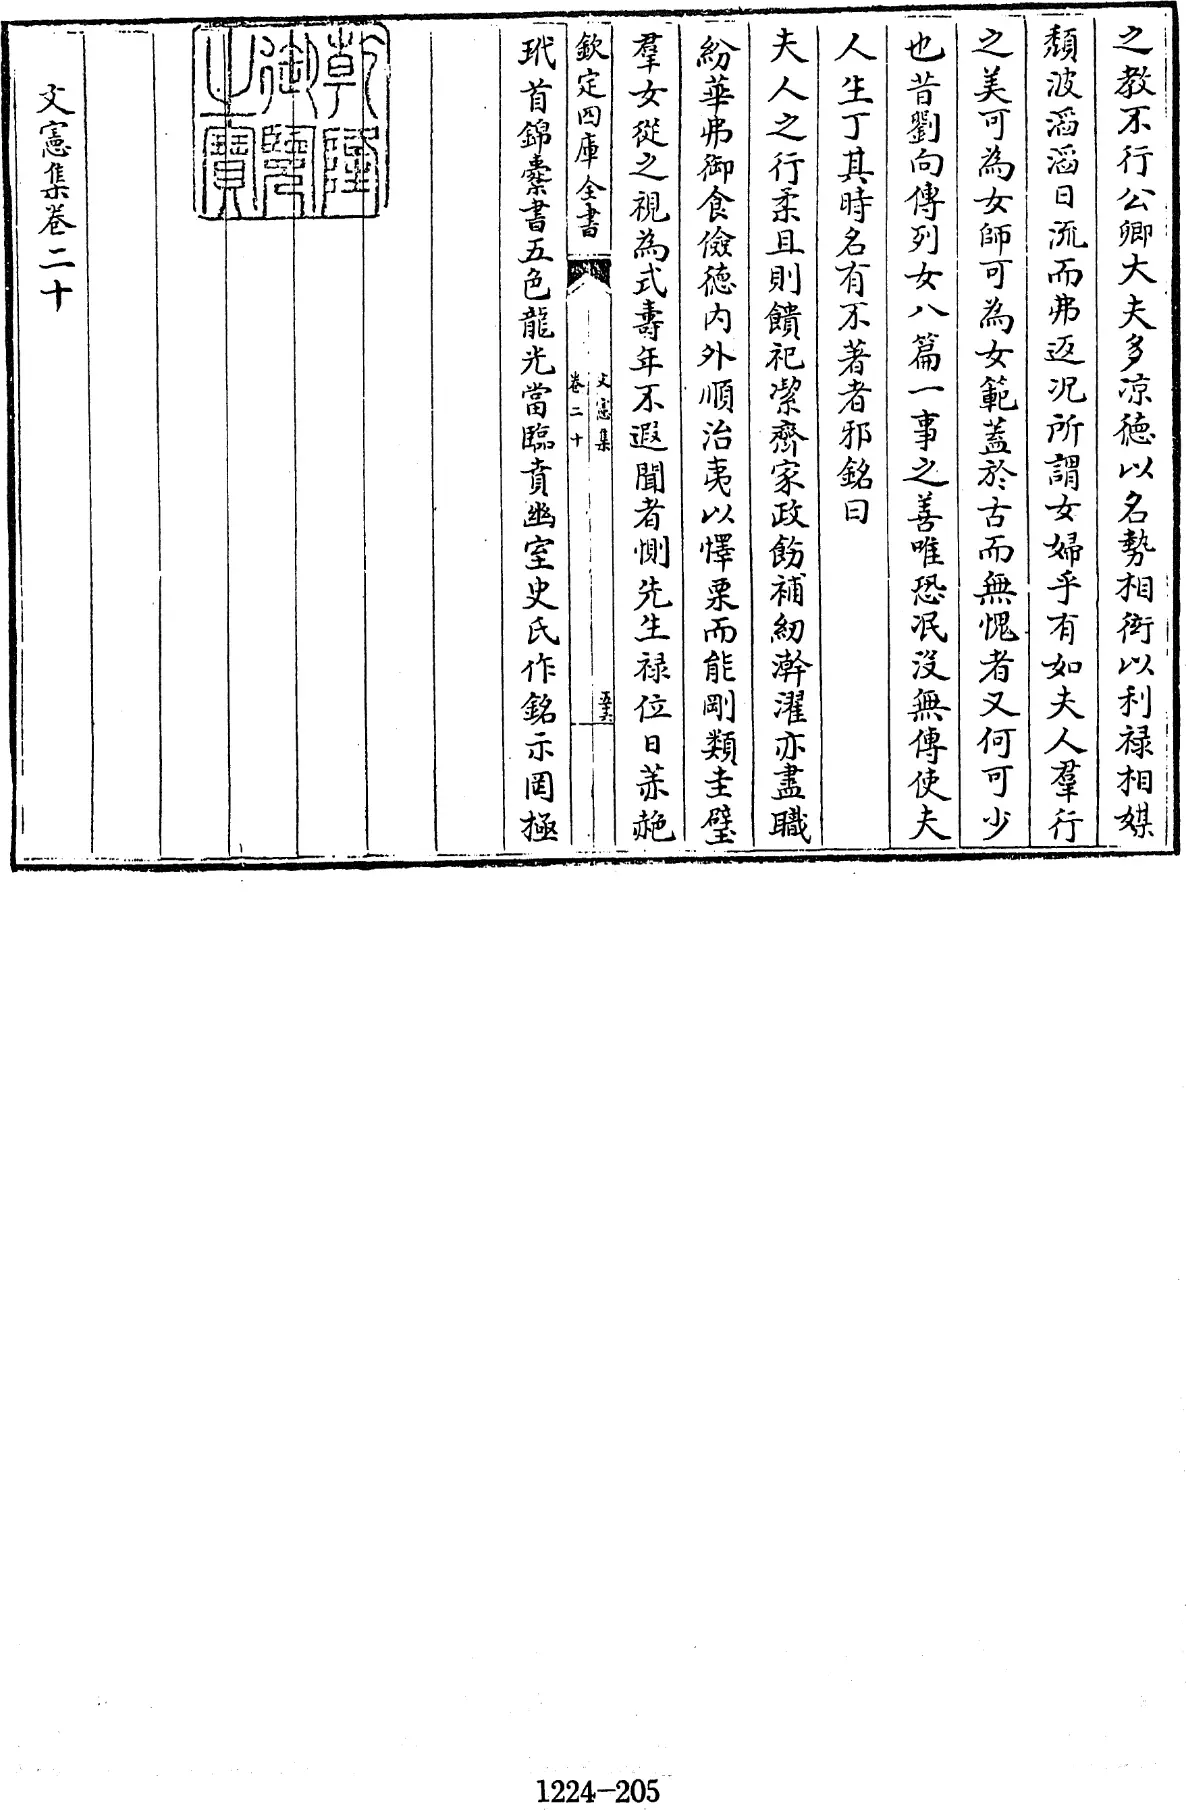 之教不行公卿大夫多凉徳以名勢相衒以利禄相媒
頽波滔滔日流而弗返況所謂女婦乎有如夫人羣行
之美可為女師可為女範葢於古而無愧者又何可少
也昔劉向傳列女八篇一事之善唯恐泯沒無傳使夫
人生丁其時名有不著者邪銘曰
夫人之行柔且則饋祀潔齊家政飭補紉澣濯亦盡職
紛華弗御食儉徳内外順治夷以懌栗而能剛類圭璧
羣女從之視為式壽年不遐聞者惻先生禄位日荼赩
欽定四庫全書
文憲集
卷二十
五十六
玳首錦囊書五色龍光當臨賁幽室史氏作銘示罔極
乾隆御覽之寶
文憲集卷二十
1224-205